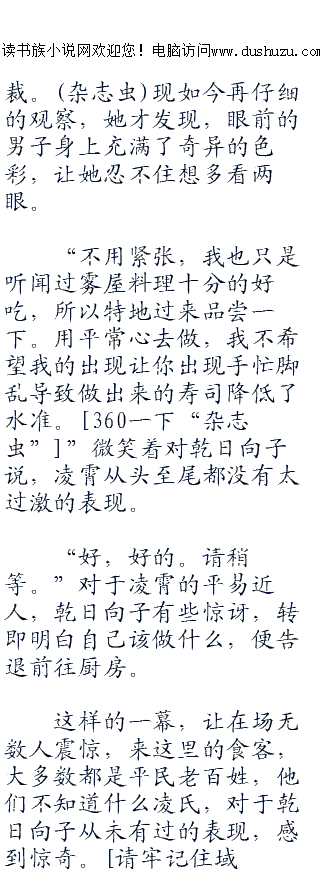 读书族小说网欢迎您！电脑访问www.dushuzu.com
裁。(杂志虫)现如今再仔细
的观察，她才发现，眼前的
男子身上充满了奇异的色
彩，让她忍不住想多看两
眼。
“不用紧张，我也只是
听闻过雾屋料理十分的好
吃，所以特地过来品尝一
下。用平常心去做，我不希
望我的出现让你出现手忙脚
乱导致做出来的寿司降低了
水准。[360一下“杂志
虫”]”微笑着对乾日向子
说，凌霄从头至尾都没有太
过激的表现。
“好，好的。请稍
等。”对于凌霄的平易近
人，乾日向子有些惊讶，转
即明白自己该做什么，便告
退前往厨房。
这样的一幕，让在场无
数人震惊，来这里的食客，
大多数都是平民老百姓，他
们不知道什么凌氏，对于乾
日向子从未有过的表现，感
到惊奇。[请牢记住域